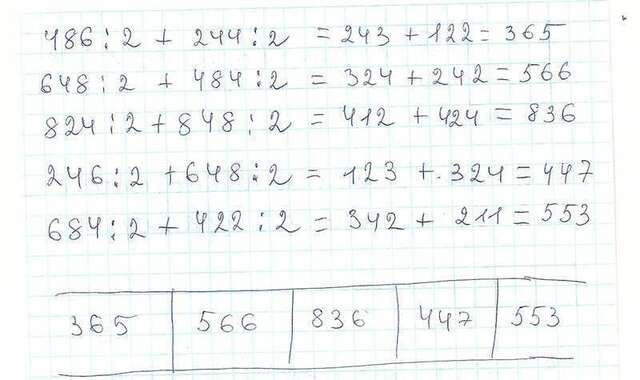 486:2 + 244:2 = 243 + 122 = 365
648:2 + 484:2 = 324 + 242 = 566
824:2 + 848:2 = 412 + 424 = 836
246:2 + 648:2 = 123 + 324 = 447
684:2 + 422:2 = 342 + 211 = 553
365 566 836 447 553